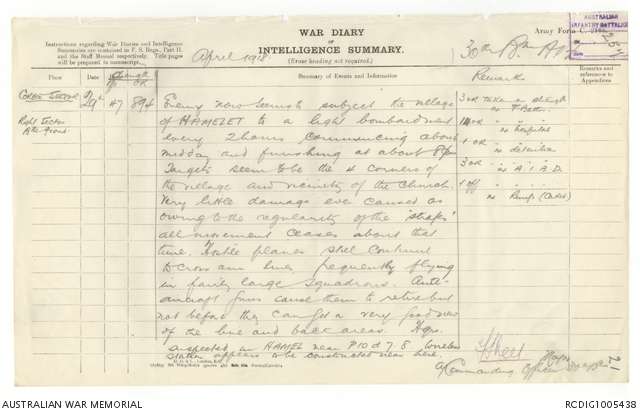 WAR DIARY
or
INTELLIGENCE SUMMARY.
(Erase heading not required.)
Army Form C.
AUSTRALIAN
INFANTRY BATTALION
Instructions regarding War Diaries and Intelligence
Summaries are contained in F. S. Regs., Part II.
and the Staff Manual respectively. Title pages
will be prepared in manuscript.
April 1918
30th Bn
Place
Date
Summary of Events and Information
Remarks
Remarks and
references to
Appendices
29th 47 894
Enemy now seems to subject the village
of HAMELET to a light bombardment
every 2 hours commencing about
midday and finishing at about 8 pm
Targets seem to be the 4 corners of
the village and vicinity of the Church.
Very little damage ever caused as
owing to the regularity of the "strafes"
all movement ceases about that
time. Hostile planes still continue
to cross our lines, frequently flying
in fairly large squadrons. Anti-
aircraft guns cause them to retire but
not before they can get a very good view
of the line and back areas. Hqrs.
suspected in HAMEL near P10 d 7.8 wireless
station appears to be constructed near here.
3 OR taken on strength
OR
hospital
1 OR
3 OR
1 Off
Major
Commanding Officer 30th Bn
AUSTRALIAN WAR MEMORIAL
RCDIG1005438